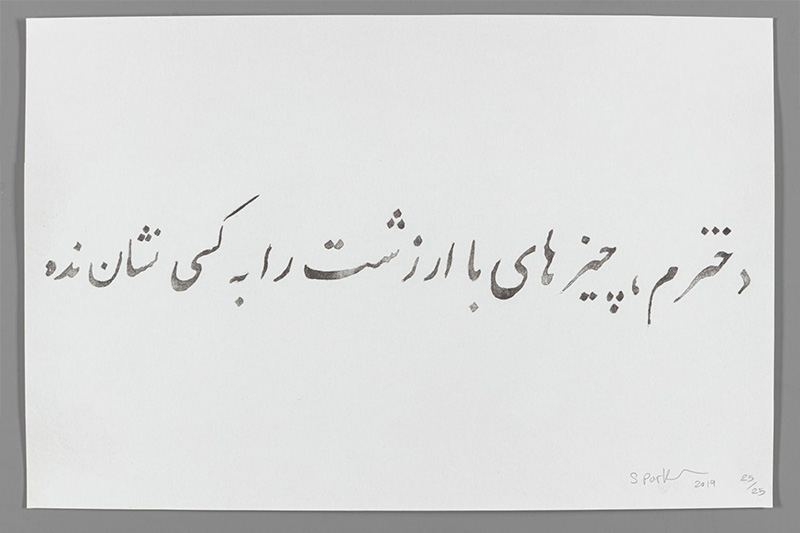 دخترم، چیزهای با ارزشت را به کسی نشان نده
2019
25/25